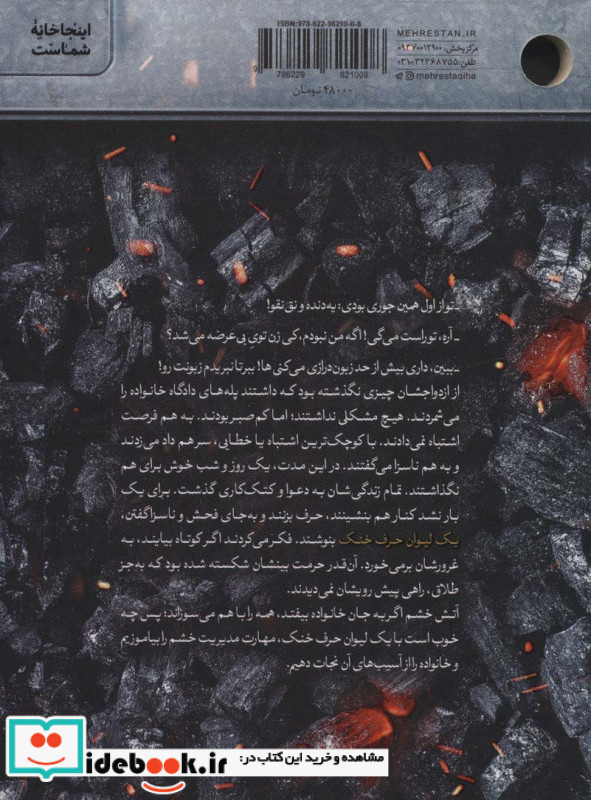 اینجا خانهٔ
شماست
ISBN:978-622-98210-0-8
9 786229 821008
۴۸۰۰۰ تومان
MEHRESTAN.IR
مرکز پخش: ۰۹۳۷۰۰۱۲۹۰۰
تلفن: ۰۳۱-۳۲۳۶۸۷۵۵
mehrestaniha
ـ تو از اول همین جوری بودی: یه‌دنده و نق‌نقو!
ـ آره، تو راست می‌گی! اگه من نبودم، کی زن توی بی‌عرضه می‌شد؟
ـ ببین، داری بیش از حد زبون‌درازی می‌کنی‌ها! ببر تا نبریدم زبونت رو!
از ازدواجشان چیزی نگذشته بود که داشتند پله‌های دادگاه خانواده را
می‌شمردند. هیچ مشکلی نداشتند؛ اما کم‌صبر بودند. به هم فرصت
اشتباه نمی‌دادند. با کوچک‌ترین اشتباه یا خطایی، سر هم داد می‌زدند
و به هم ناسزا می‌گفتند. در این مدت، یک روز و شب خوش برای هم
نگذاشتند. تمام زندگی‌شان به دعوا و کتک‌کاری گذشت. برای یک
بار نشد کنار هم بنشینند، حرف بزنند و به‌جای فحش و ناسزا گفتن،
یک لیوان حرف خنک بنوشند. فکر می‌کردند اگر کوتاه بیایند، به
غرورشان برمی‌خورد. آن‌قدر حرمت بینشان شکسته شده بود که به‌جز
طلاق، راهی پیش رویشان نمی‌دیدند.
آتش خشم اگر به جان خانواده بیفتد، همه را با هم می‌سوزاند؛ پس چه
خوب است با یک لیوان حرف خنک، مهارت مدیریت خشم را بیاموزیم
و خانواده را از آسیب‌های آن نجات دهیم.
مشاهده و خرید این کتاب در:
idebook.ir